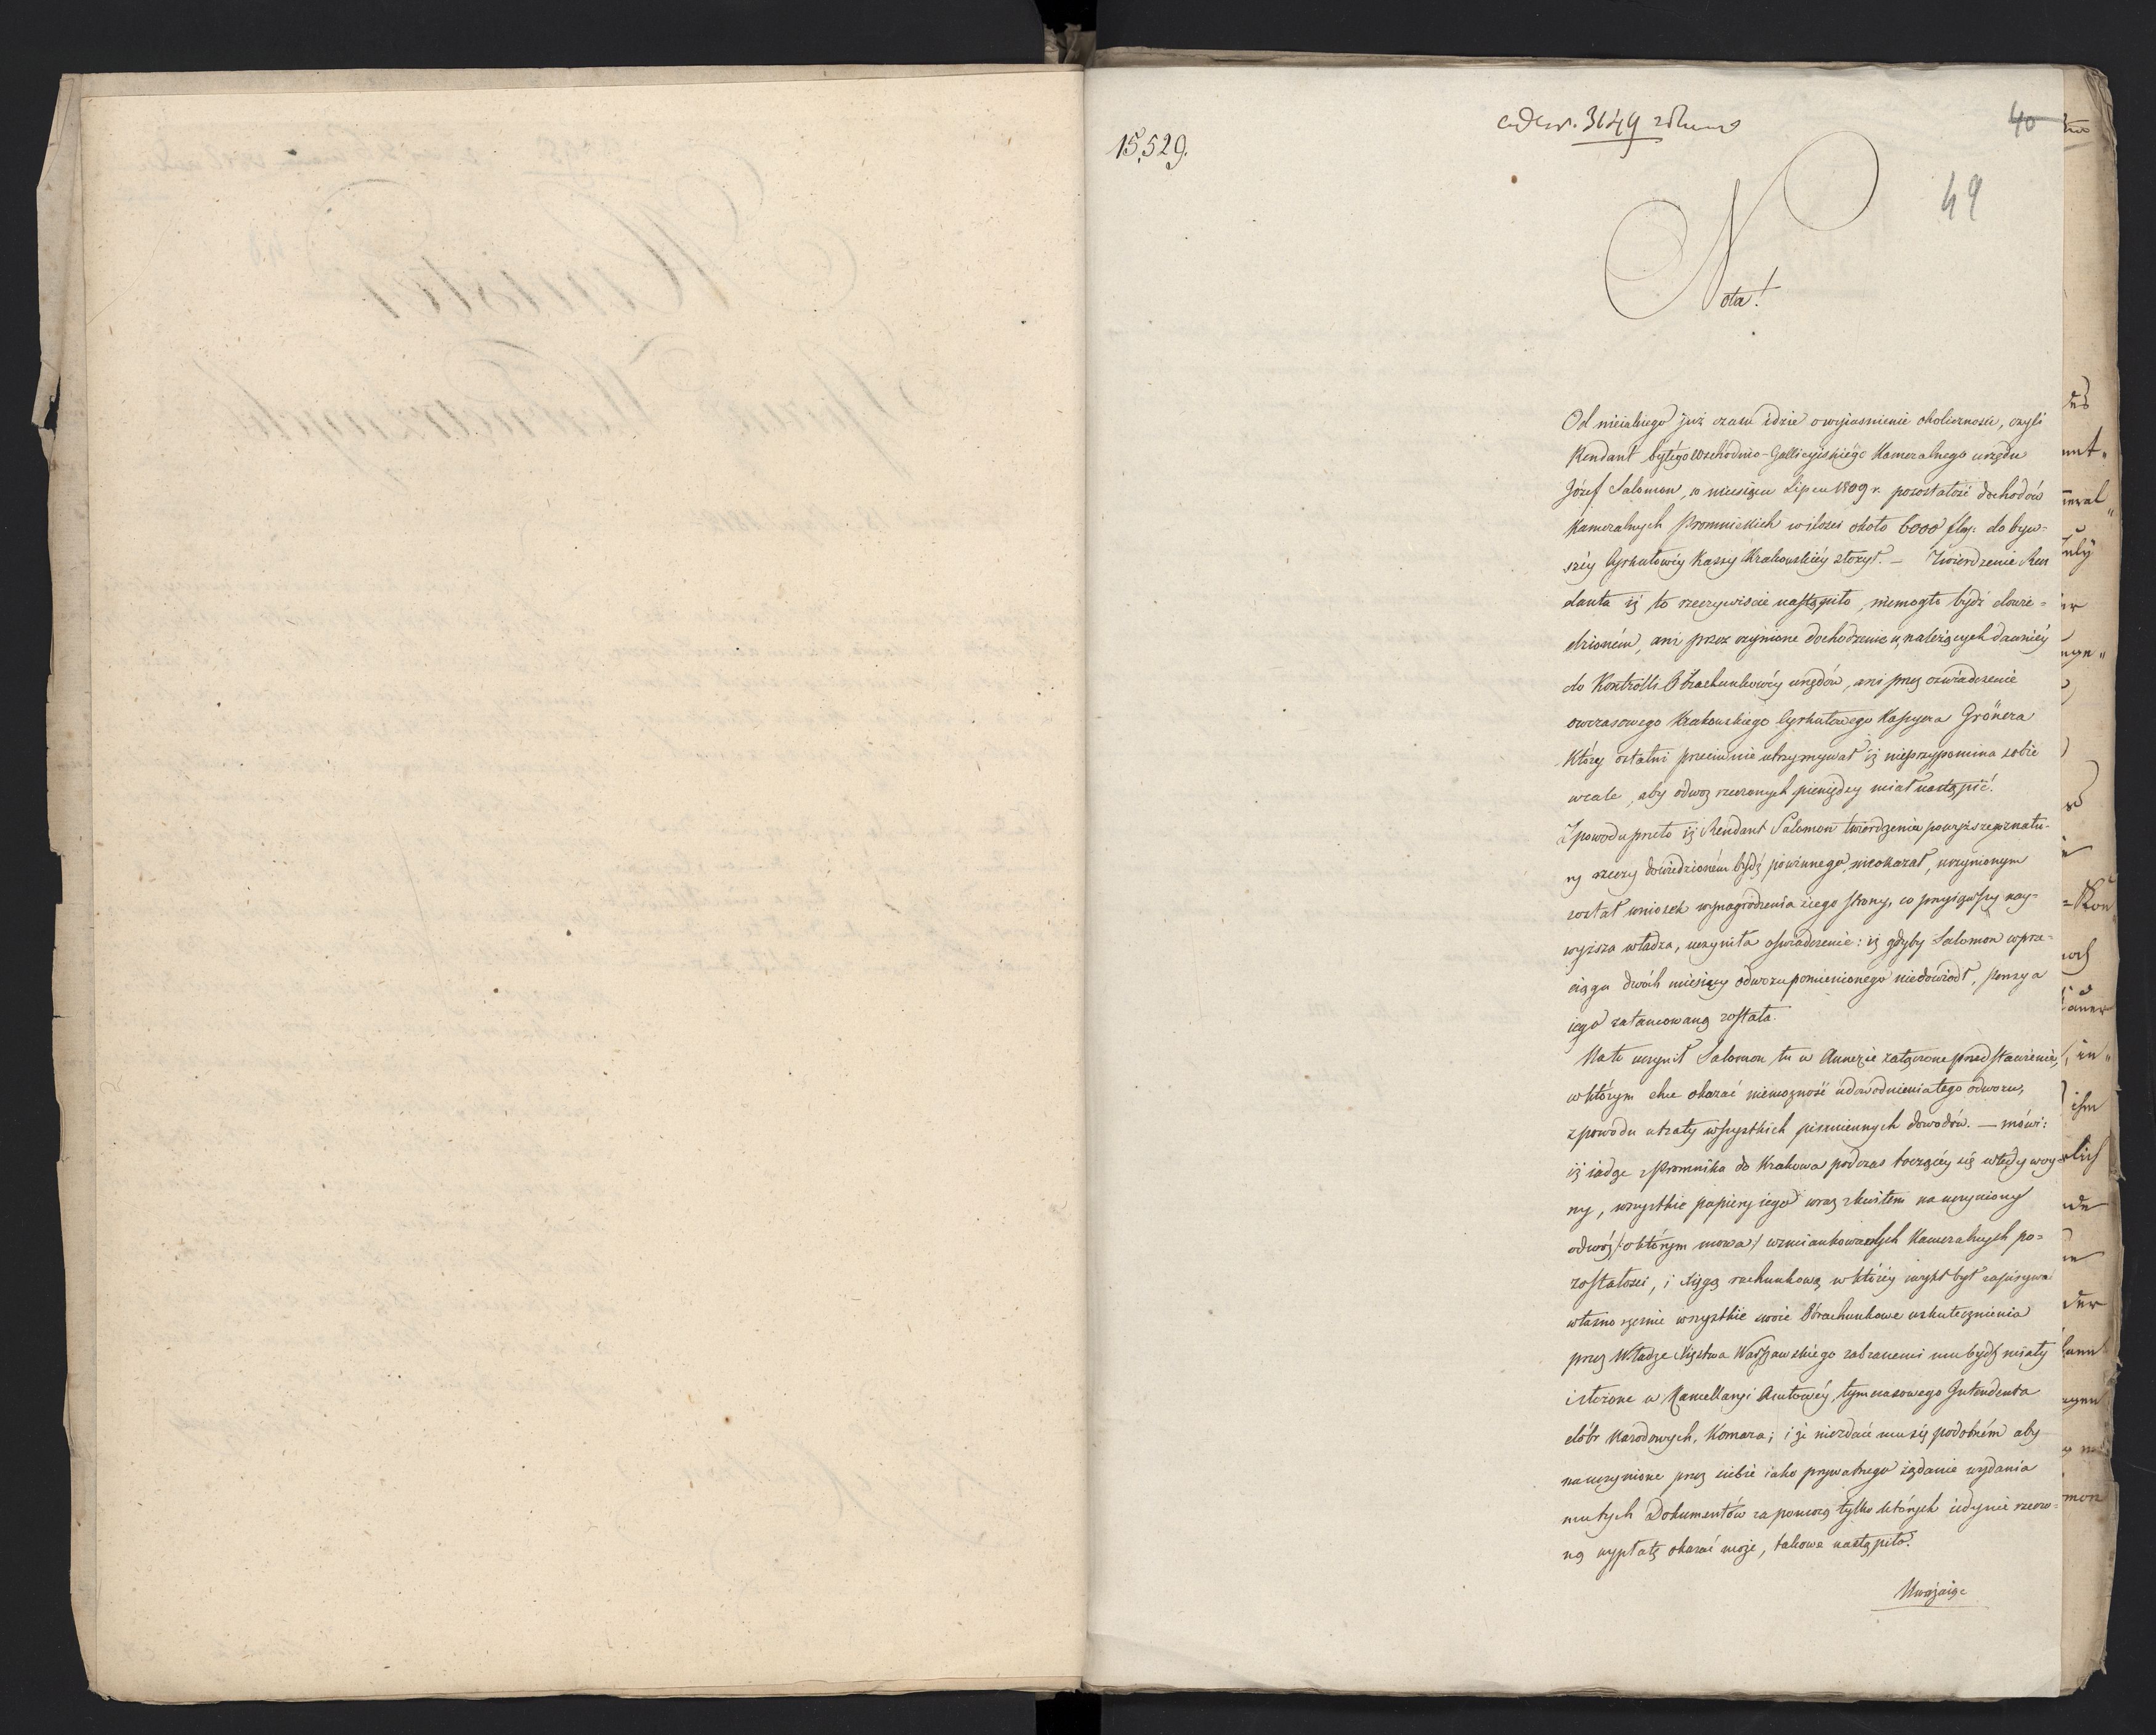 15,529.
3149
40
49
Nota!
Od nieiakiego już czasu idzie o wyiasnienie okoliczności, czyli
Rendant byłego Wschodnio-Gallicyiskiégo Kameralnego urzędu
Józef Salomon, w miesiącu Lipcu 1809 r. pozostałość dochodów
Kameralnych Promnickich w ilości około 6000 do byw-
széy Cyrkułowéy Kassy Krakowskiéy złożył. — Twierdzenie Ren
danta iż to rzeczywiscie nastąpiło, niemogło bydź dowie-
dzioném, ani przez czynione dochodzenie u należących dawniéy
do Kontrolli Obrachunkowéy urzędów, ani przez oświadczenie
owczasowego Krakowskiego Cyrkułowego Kassyera Grönera
Który ostatni przeciwnie utrzymywał iż nieprzypomina sobie
wcale, aby odwoz rzeczonych pieniędzy miał nastąpić.
Z powodu przeto iż Rendant Salomon twierdzenia powyższego z natu-
ry rzeczy dowiedzioném bydź powinnego nieokazał, uczynionym
został wniosek wynagrodzenia z iego strony, co przyiąwszy nay-
wyższa władza, uczyniła oświadczenie: iż gdyby Salomon w prze-
ciągu dwóch miesięcy odwozu pomienionego niedowiódł, pensya
iego zatamowaną zostałа.
Na to uczynił Salomon tu w Annexie załączone przedstawienie,
w którym chce okazać niemożność udowodnienia tego odwozu,
z powodu utraty wszystkich pismiennych dowodów. — mówi:
iż iadąc z Promnika do Krakowa podczas toczącéy się wtedy woy-
ny, wszystkie papiery iego wraz z kwitem na uczyniony
odwóz /: o którym mowa :/ wzmiankowanych Kameralnych po-
zostałości, i xięgą rachunkową w któréy zwykł był zapisywać
własno ręcznie wszystkie swoie Obrachunkowe uskutecznienia
przez Władze Xięstwa Warszawskiego zabranemi mu bydź miały
i złożone w Kancellaryi Aktowéy, tymczasowego Intendenta
dóbr Narodowych, Komara; i że niezdaie mu się podobném aby
na uczynione przez siebie iako prywatnego żądanie wydania
mu tych Dokumentów za pomocą tylko których iedynie rzeczo-
ną wypłatę okazać może, takowe nastąpiło.
Uważaiąc